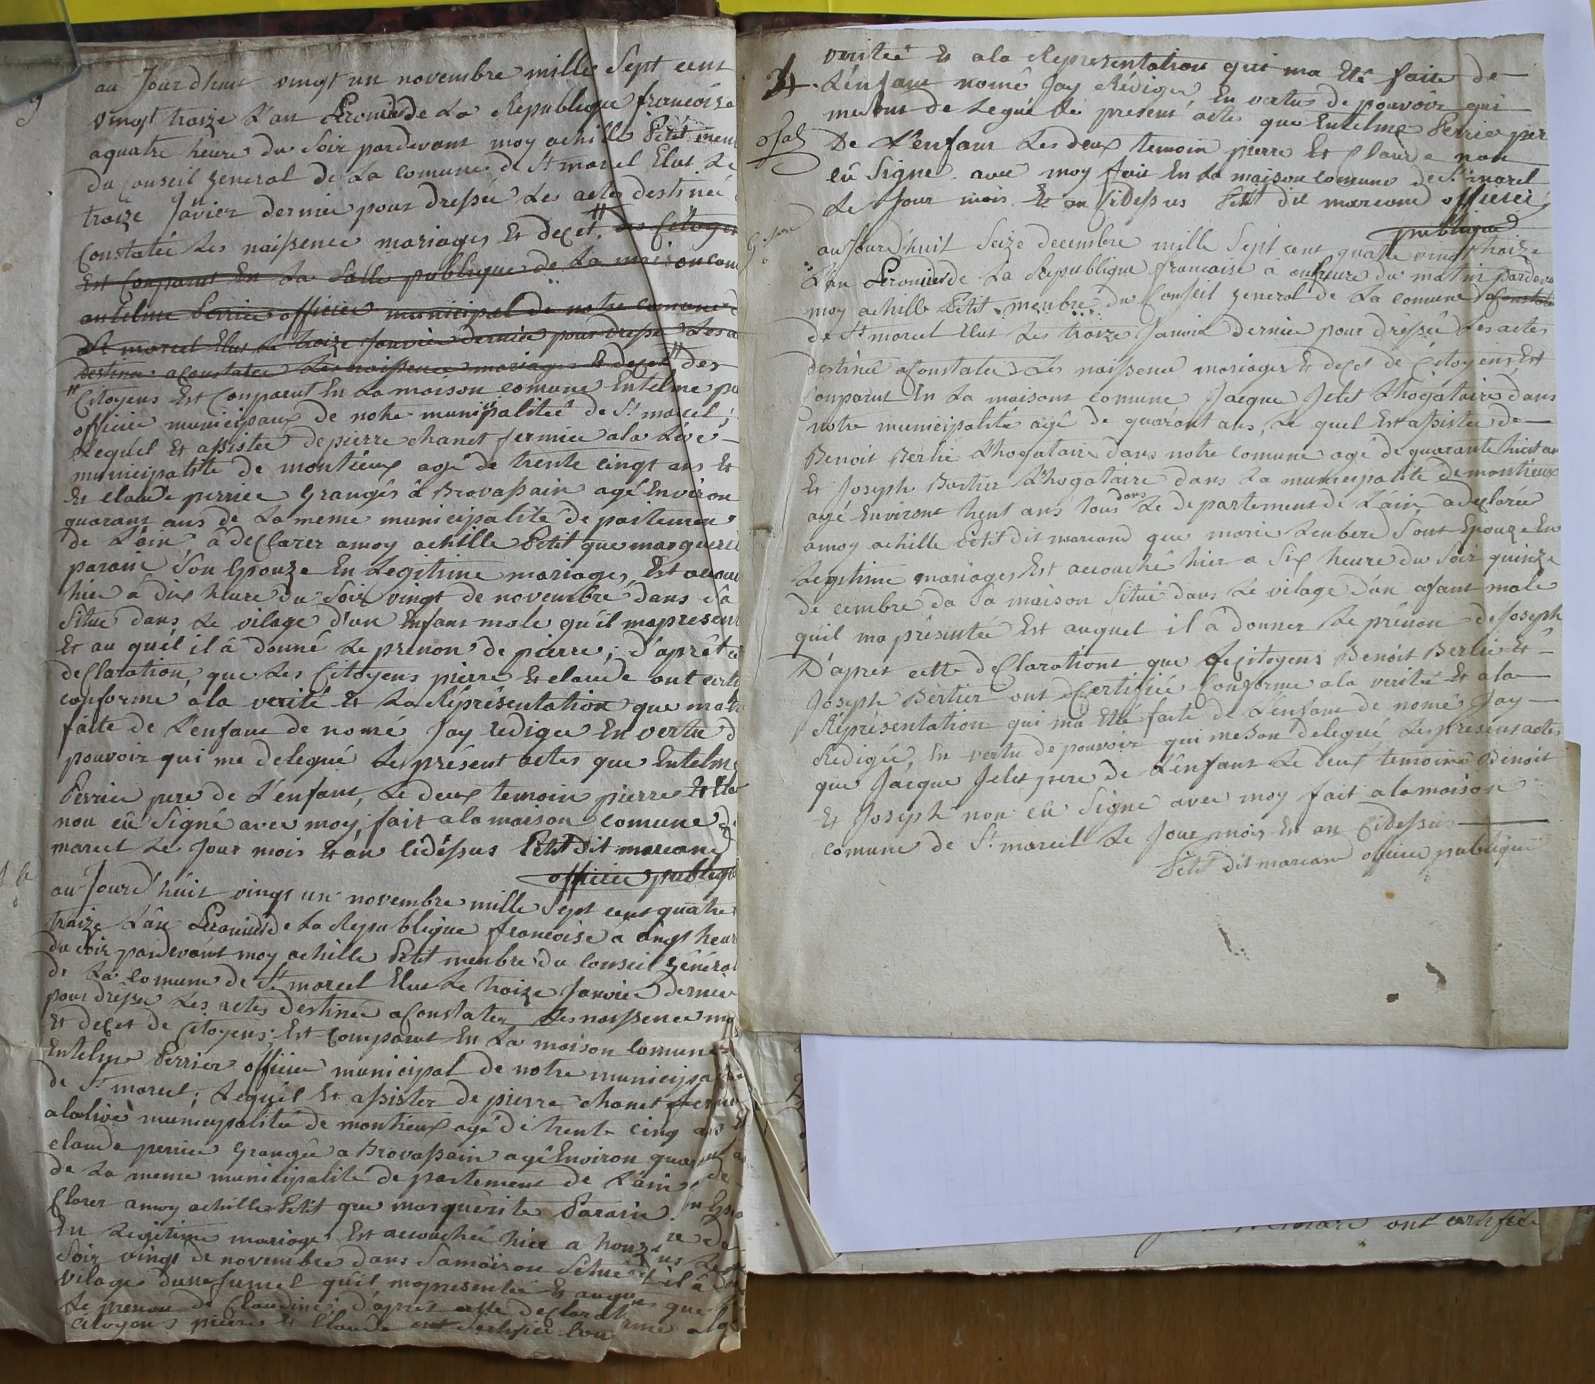 au Jourdhuit vingt un novembre mille Sept cent
vingt traize L'an Second de La Republique francoise
a quatre heure du Soir pardevant moy achille Petit mem
du Conseil general de La comune de St marcel Elut Le
traize Janvier dernier pour dressée Les actes destinée
Constatée Les naissence mariages Et decet des Citoyen
Est Comparut En La Salle publique de La maison com
antelme Perrier officier municipal de notre comune
St marcel Elut Le traize Janvier dernier pour dresse Les a
destinée a Constatée Les naissence mariages Et decet des
Citoyens Est Comparut En La maison comune Entelme pe
officier municipaux de notre municipalitée de St marcel ;
Lequel Et assistée de pierre chanet fermier a la
municipalité de montieux agé de trente cinqt ans Et
Et claude perrier Grangés a Bravassain agé Environ
quarant ans de La meme municipalité departemen
de L'ain, a declarer a moy achille Petit que marguerit
parain Son Epouze En Legitime mariages, Est accou
hier a dix heure du Soir vingt de novembre dans Sa
Situé dans Le vilage d'un Enfant male qu'il mapresent
Et au quél il â donné Le prenon de pierre ; d'aprêt c
declaration que Les Citoyens pierre Et claude ont certi
conforme a la verité Et La Réprésentation que ma
faite de L'enfant de nomé Jay rediger En vertu d
pouvoir qui me delegué Le présent actes que Entelme
Perrier pere de L'enfant, Le deux temoin pierre Et Cla
non sû Signé avec moy, fait a la maison comune de
marcel Le Jour mois Et an cidéssus Petit dit marcand
officier publiqu
au Jourd'huit vingt un novembre mille Sept cent quatre
traize L'an Second de La Republique francoise a cinqt heur
du Soir pardevant moy achille Petit menbre du Conseil Général
de La Comune de St marcel Elut Le traize Janvier dernier
pour dresse Les actes destinée a Constater Les naissence ma
Et decet de Citoyens ; Est Comparut En La maison comune
Entelme Perrier officier municipal de notre municipa
de St marcel ; Lequél Et assister de pierre chanet fermier
a la municipalitée de montieux agé de trente cinq ans
claude perrier Grangée a Bravassain agé Environ quarant
de La meme municipalité departement de L'ain de
Clarer a moy achille Petit que marguerite Parain
En Legitime mariages Est accouchée hier a honz
Soir vingt de novembre dans Sa maison Situé
vilage dune qu'il mapresentée Et auqu
Le prenon de Claudine d'apret cette declarat que
Citoyens pierre Et Claude ont certifiée Con
veritée Et a la Representation qui ma Eté faite de
L'enfant nomé Jay Rédiger En vertu de pouvoir qui
me sont delegué Le present acte que Entelme Perrier per
De L'enfant Les deux temoin pierre Et Claude non
sû Signé avec moy fait En La maison comune de St marcel
Le Jour mois Et an cidessus Petit dit marcand officier
publique
au Jourd'huit Seize decembre mille Sept cent quatre vingt traize
L'an Second de La Republique francaise a onze heure du matin pardeva
moy achille Petit menbre du Conseil general de La comune
de St marcel Elut Les traize Janvier dernier pour dréssée Les actes
destinée a Constater Les naissence mariages Et decet de Citoyens Est
Comparut En La maisont comune Jacque Jelet dans
notre municipalité agé de quarant ans, Le quel Est assistée de
Benoit Berlié dans notre comune agé de quarante huit an
Et Joseph Bertier dans La municipalité de montieux
agé Environt trent ans tous dans Le departement de L'ain, a declarée
a moy achille Petit dit marcand que marie Sont Epouze En
Legitime mariages Est accouchê hier a Six heure du Soir quinze
de cembre da Sa maison Situé dans Le vilage d'un afant male
quil ma présentée Est auquel il a donner Le prénon de Joseph
D'apret cette declarationt que Le Citoyens Benoit Berlié Et
Joseph Bertier ont Certifiée Conforme a la veritée Et a la
Représentation qui ma Eté faite de L'enfant de nomé Jay
Redigée, En vertu de pouvoir qui me Son delegué Le présens actes
que Jacque Jelet pere de L'enfant Le deux temoins Benoit
Et Joseph non sû Signé avec moy fait a la maison
comune de St marcel Le Jour mois Et an cidessus
Petit dit marcand officier publique
ont certifiée